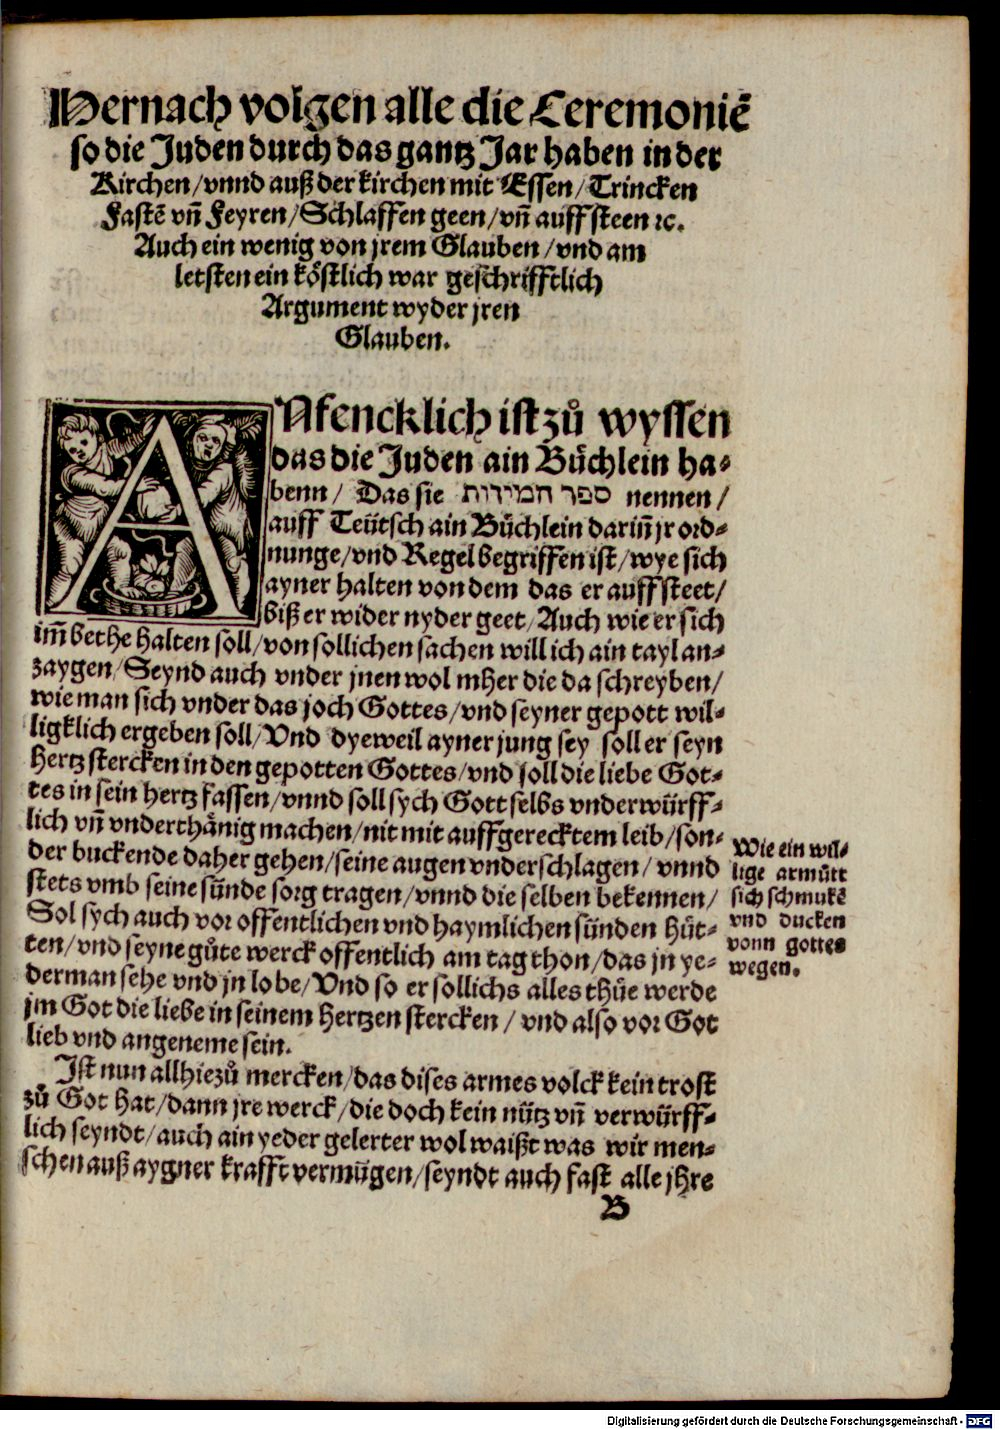 Hernach volgen alle die Ceremoniẽ
so die Juden durch das gantz Jar haben in der
Kirchen / vnnd auß der kirchen mit Essen / Trincken
Fastẽ vñ Feyren / Schlaffen geen / vñ auffsteen ꝛc.
Auch ein wenig von jrem Glauben / vnd am
letsten ein köstlich war geschrifftlich
Argument wyder jren
Glauben.
ANfencklich ist zů wyssen
das die Juden ain Büchlein ha-
benn / Das sie ספר המידות nennen /
auff Teütsch ain Büchlein dariñ jr ord-
nunge / vnd Regel begriffen ist / wye sich
ayner halten von dem das er auffsteet /
biß er wider nyder geet / Auch wie er sich
im̃ bethe halten soll / von sollichen sachen will ich ain tayl an-
zaygen / Seynd auch vnder jnen wol mher die da schreyben /
wie man sich vnder das joch Gottes / vnd seyner gepott wil-
ligklich ergeben soll / Vnd dyeweil ayner jung sey soll er seyn
hertz stercken in den gepotten Gottes / vnd soll die liebe Got-
tes in sein hertz fassen / vnnd soll sych Gott selbs vnderwürff-
lich vñ vnderthänig machen / nit mit auffgerecktem leib / son-
der buckende daher gehen / seine augen vnderschlagen / vnnd
stets vmb seine sünde sorg tragen / vnnd die selben bekennen /
Sol sych auch vor offentlichen vnd haymlichen sünden hüt-
ten / vnd seyne gůte werck offentlich am tag thon / das jn ye-
derman sehe vnd jn lobe / Vnd so er sollichs alles thüe werde
jm Got die liebe in seinem hertzen stercken / vnd also vor Got
lieb vnd angeneme sein.
Wie ein wil-
lige armůtt
sich schmukẽ
vnd ducken
vonn gottes
wegen.
Ist nun allhie zů mercken / das dises armes volck kein trost
zů Got hat / dann jre werck / die doch kein nütz vñ verwürff-
lich seyndt / auch ain yeder gelerter wol waißt was wir men-
schen auß aygner krafft vermügen / seyndt auch fast alle jhre
B
Digitalisierung gefördert durch die Deutsche Forschungsgemeinschaft - DFG